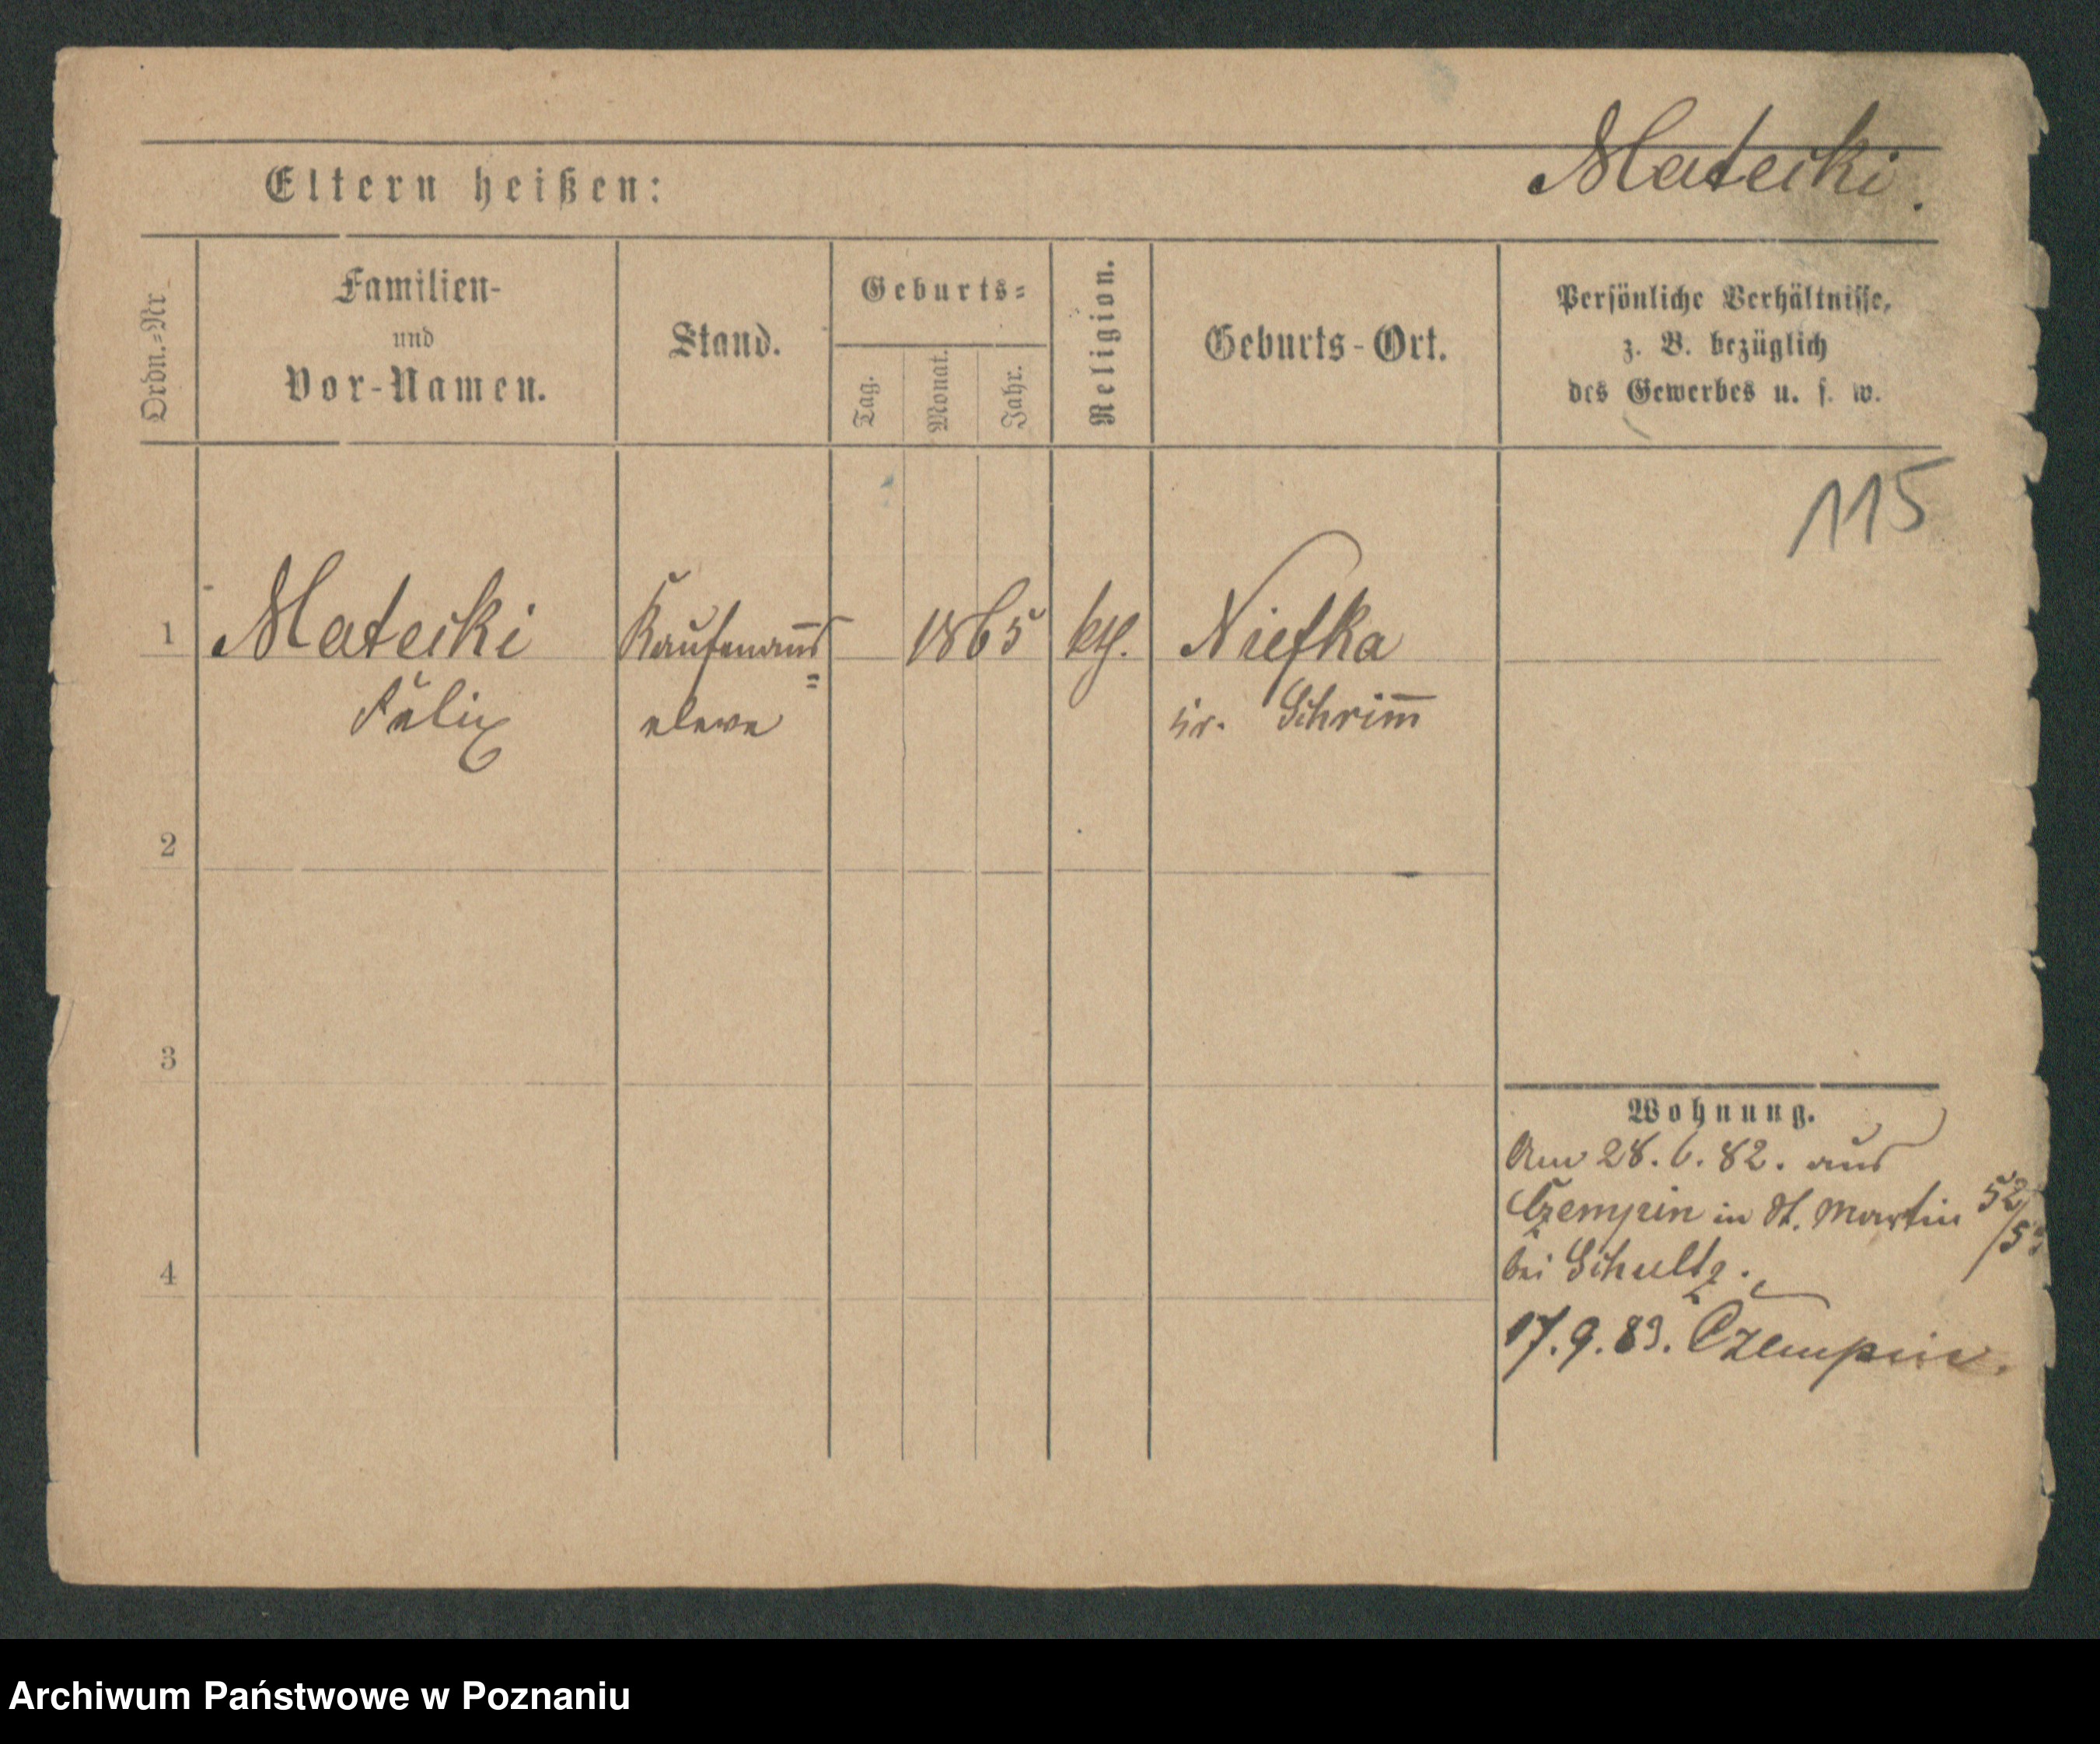 Matecki.
Eltern heißen:
Ordn.-Nr.
Familien-
und
Vor-Namen.
Stand.
Geburts-
Tag.
Monat.
Jahr.
Religion.
Geburts-Ort.
Persönliche Verhältnisse,
z. B. bezüglich
des Gewerbes u. s. w.
115
1 Matecki Kaufmanns= 1865 kth. Niefka
Felix eleve Kr. Schrim̅
2
3
4
Wohnung.
Am 28. 6. 82. aus
Czempin in St. Martin 52/
bei Schultz.
17. 9. 83. Czempin.
Archiwum Państwowe w Poznaniu